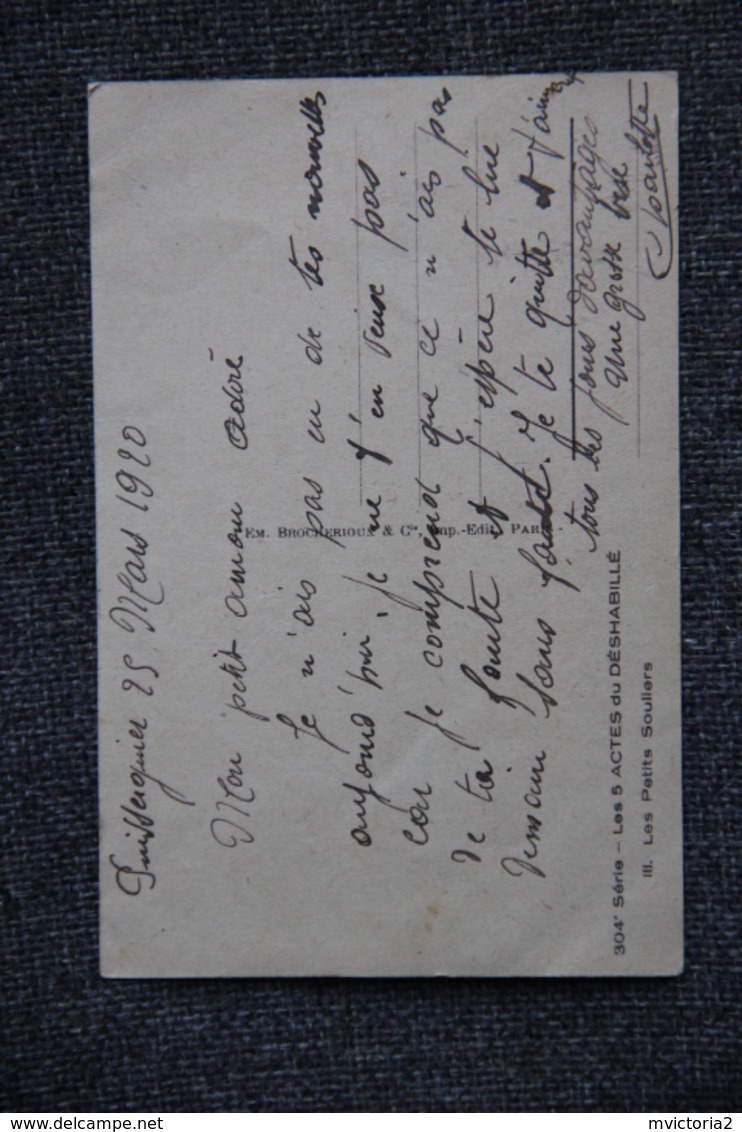 Puisserguier 25 Mars 1920
Mon petit amour adoré
Je n'ais pas eu de tes nouvelles
aujourd'hui, je ne t'en veux pas
car je comprend que ce n'ais pas
de ta faute et j'espère te lire
demain sans faute. Je te quitte et t'aime
tous les jours davantages
Une grosse bise
Charlotte
EM. BROCHERIOUX & Cie, Imp.-Edit., PARIS
304e Série – Les 5 ACTES du DÉSHABILLÉ
III. Les Petits Souliers
mvictoria2